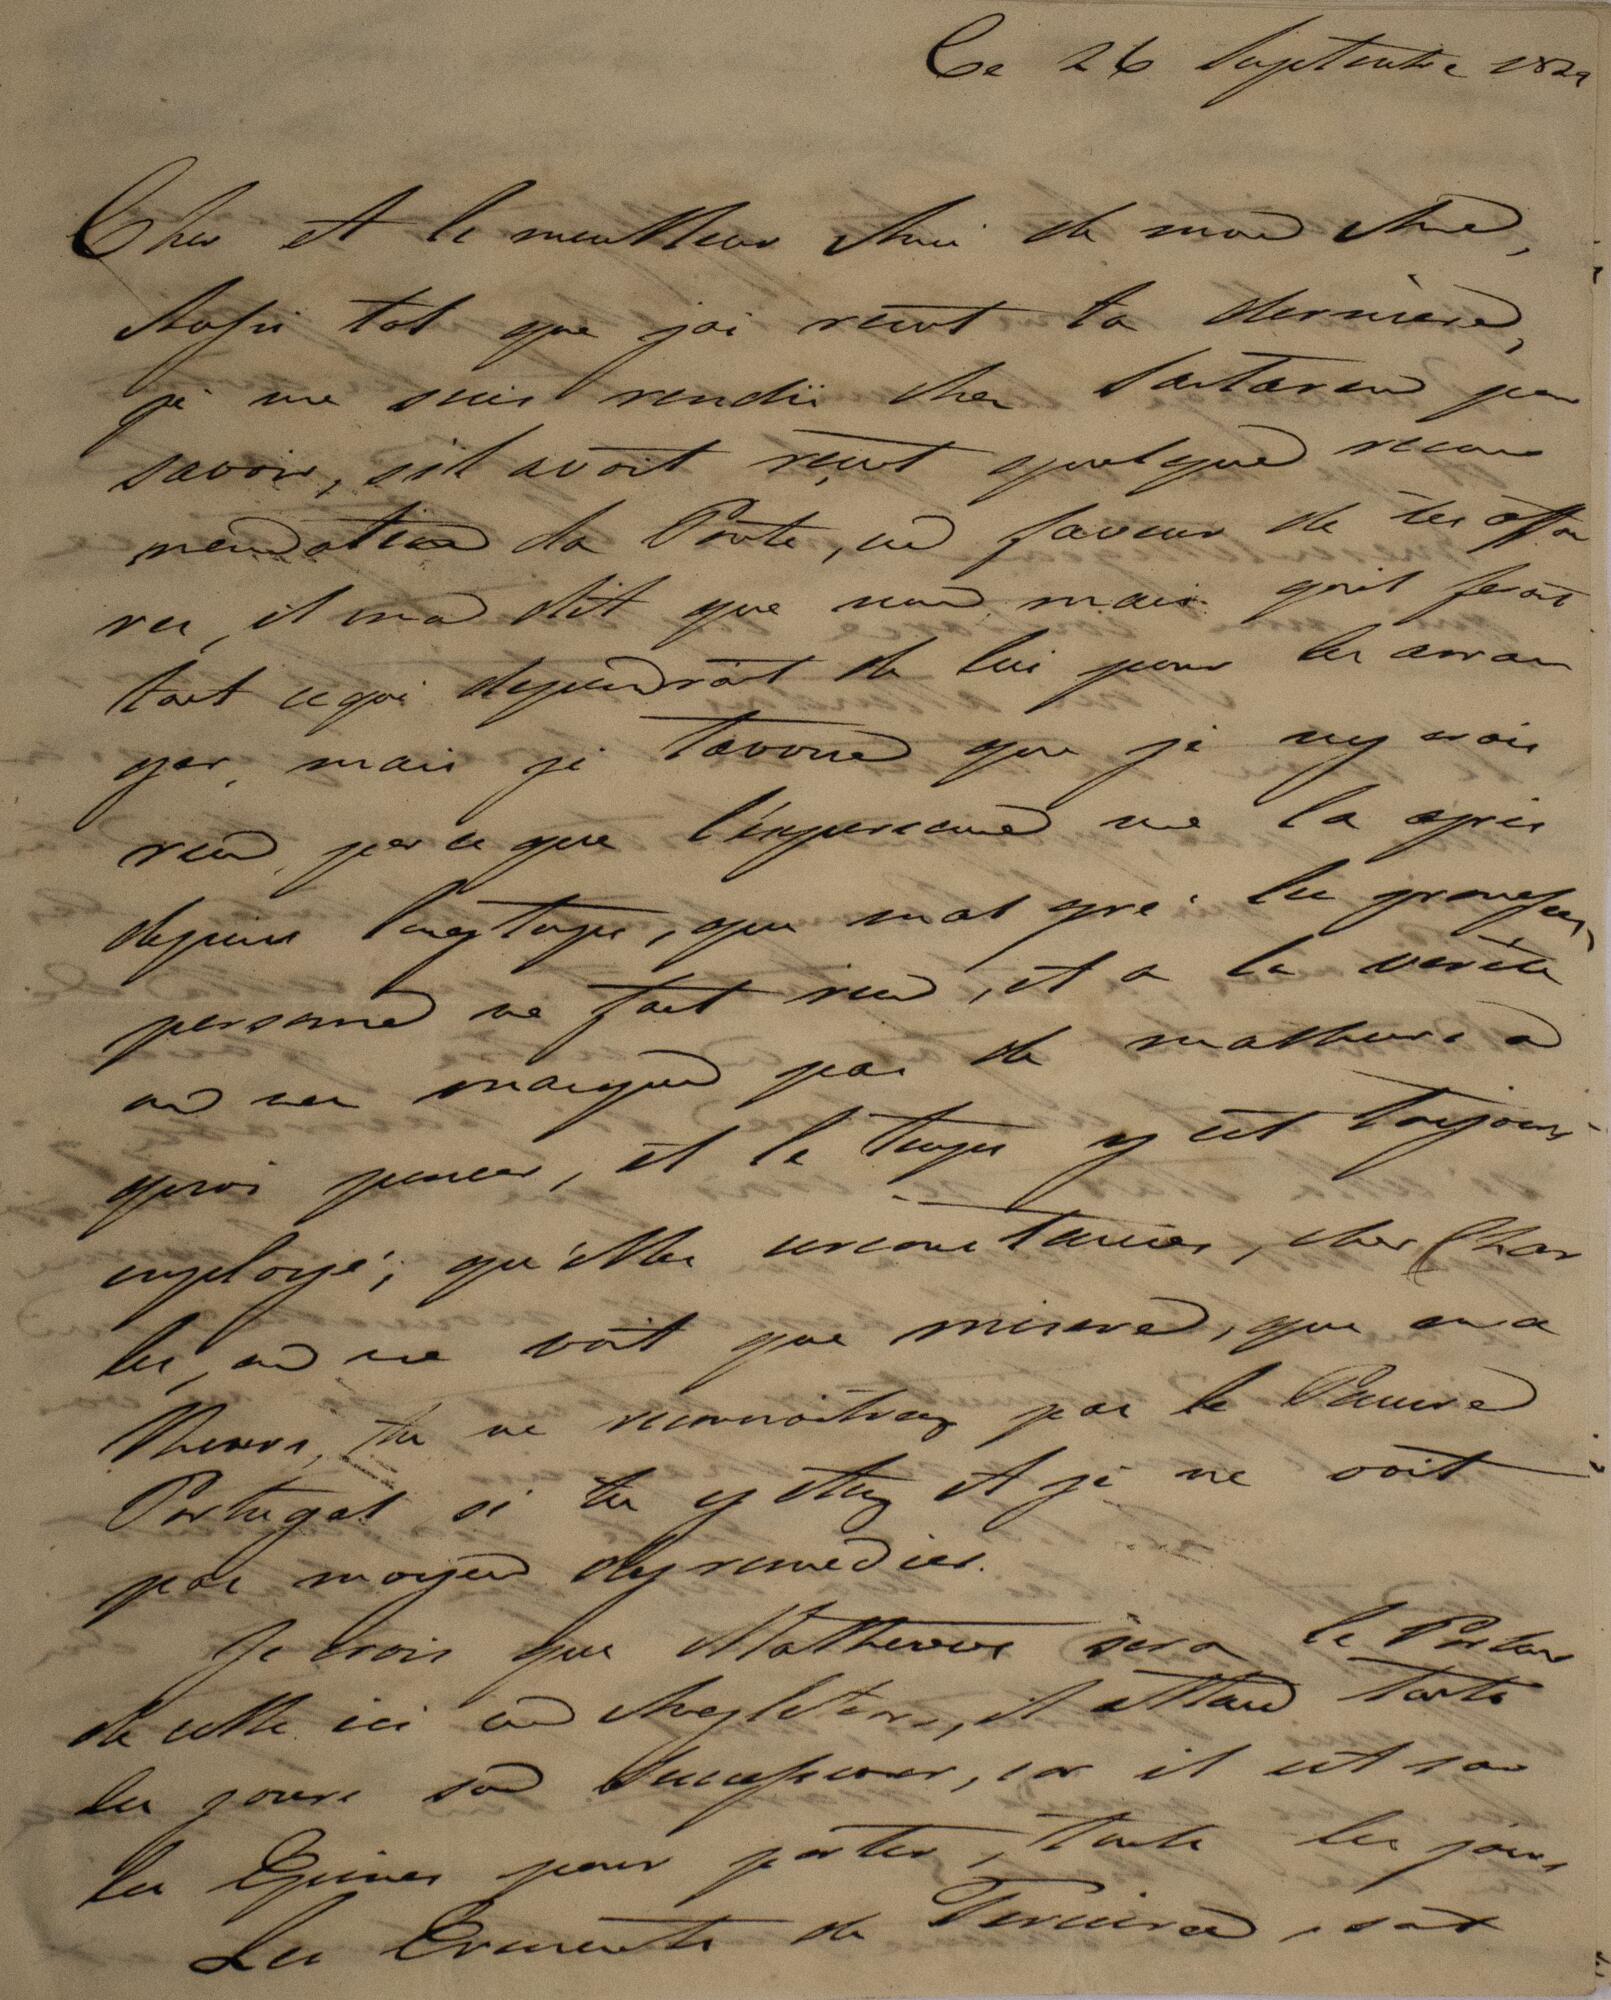 Ce 26 Septembre 1829
Cher et le meilleur Ami de mon Ame,
Aussi tot que jai recut ta derniere,
je me suis rendü chez Santarem pour
savoir, sil avoit reçut quelque recom
mendation da Ponte, en faveur de tes affai
res, il ma dit que non, mais quil feroit
tout ce qui dependroit de lui pour les arran
ger, mais je tavoue que je ny crois
rien, parce que l'experience me la apris
depuis longtemps, que malgré les promesses,
personne ne fait rien, et a la verité
on ne manque pas de malheurs a
quoi penser, et le temps y est toujours
employé; qu'elles circonstances, cher Char
les, on ne voit que misere, que ma
lheurs, tu ne reconnoitrez pas le Pauvre
Portugal si tu y etez et je ne voit
pas moyen dy remedier.
Je crois que Mathewes sera le Porteur
de cette ici en Angleterre, il attend touts
les jours son Successeur, car il est sur
les Epines pour partir, touts les jours
Les Evenements de Terceira, sont